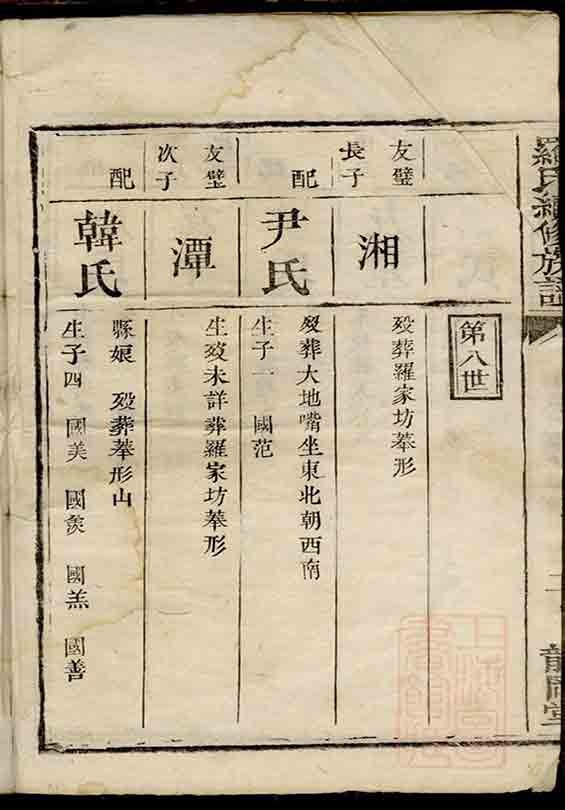 羅氏續修族譜
第八世
友璧
長子
湘
歿葬羅家坊
形
配
尹氏
歿葬大地嘴坐東北朝西南
生子一 國范
友璧
次子
潭
生歿未詳葬羅家坊
形
配
韓氏
縣娘 歿葬
形山
生子四 國美 國羨 國羔 國善